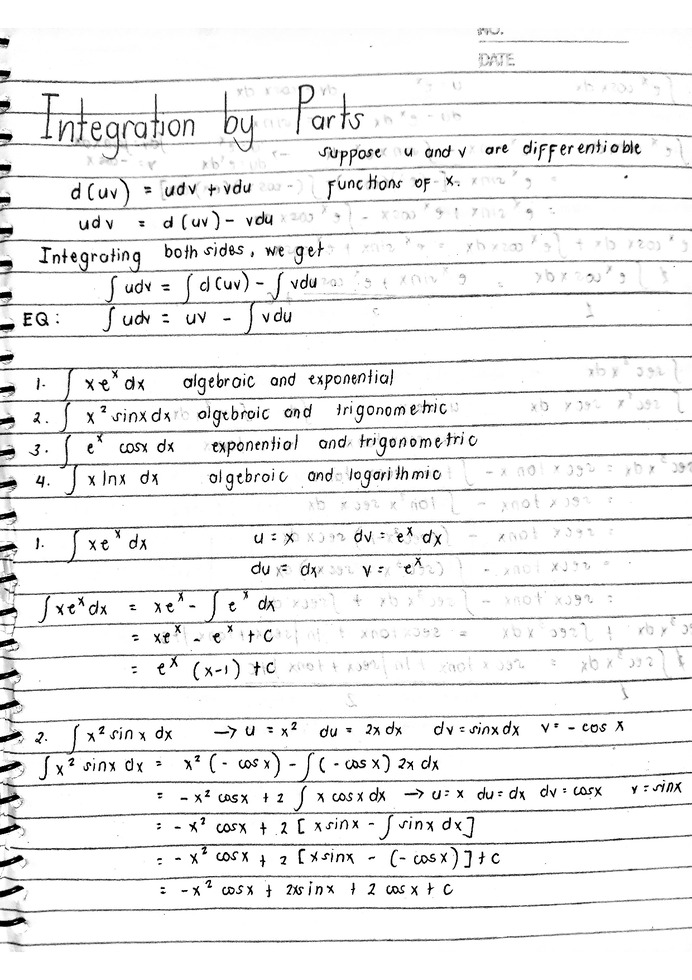 NO.
DATE
Integration by Parts
suppose u and v are differentiable
d(uv) = udv + vdu functions of x.
udv = d(uv) - vdu
Integrating both sides, we get
∫ udv = ∫ d(uv) - ∫ vdu
EQ: ∫ udv = uv - ∫ vdu
1. ∫ xeˣ dx algebraic and exponential
2. ∫ x² sinx dx algebraic and trigonometric
3. ∫ eˣ cosx dx exponential and trigonometric
4. ∫ x lnx dx algebraic and logarithmic
1. ∫ xeˣ dx u = x dv = eˣ dx
du = dx v = eˣ
∫ xeˣ dx = xeˣ - ∫ eˣ dx
= xeˣ - eˣ + C
= eˣ (x-1) + C
2. ∫ x² sin x dx → u = x² du = 2x dx dv = sinx dx v = - cos x
∫ x² sinx dx = x² (- cosx) - ∫ (- cosx) 2x dx
= -x² cosx + 2 ∫ x cosx dx → u = x du = dx dv = cosx v = sinx
= -x² cosx + 2 [ x sinx - ∫ sinx dx ]
= -x² cosx + 2 [ x sinx - (- cosx) ] + C
= -x² cosx + 2x sinx + 2 cosx + C